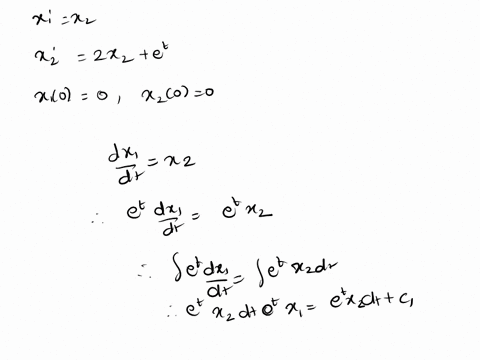 x₁' = x₂
x₂' = 2x₂ + eᵗ
x₁(0) = 0 , x₂(0) = 0
dx₁/dt = x2
∴ eᵗ dx₁/dt = eᵗ x₂
∴ ∫eᵗ dx₁/dt = ∫eᵗ x₂dt
∴ eᵗ x₂ dt eᵗ x₁ = eᵗx₂dt + c₁